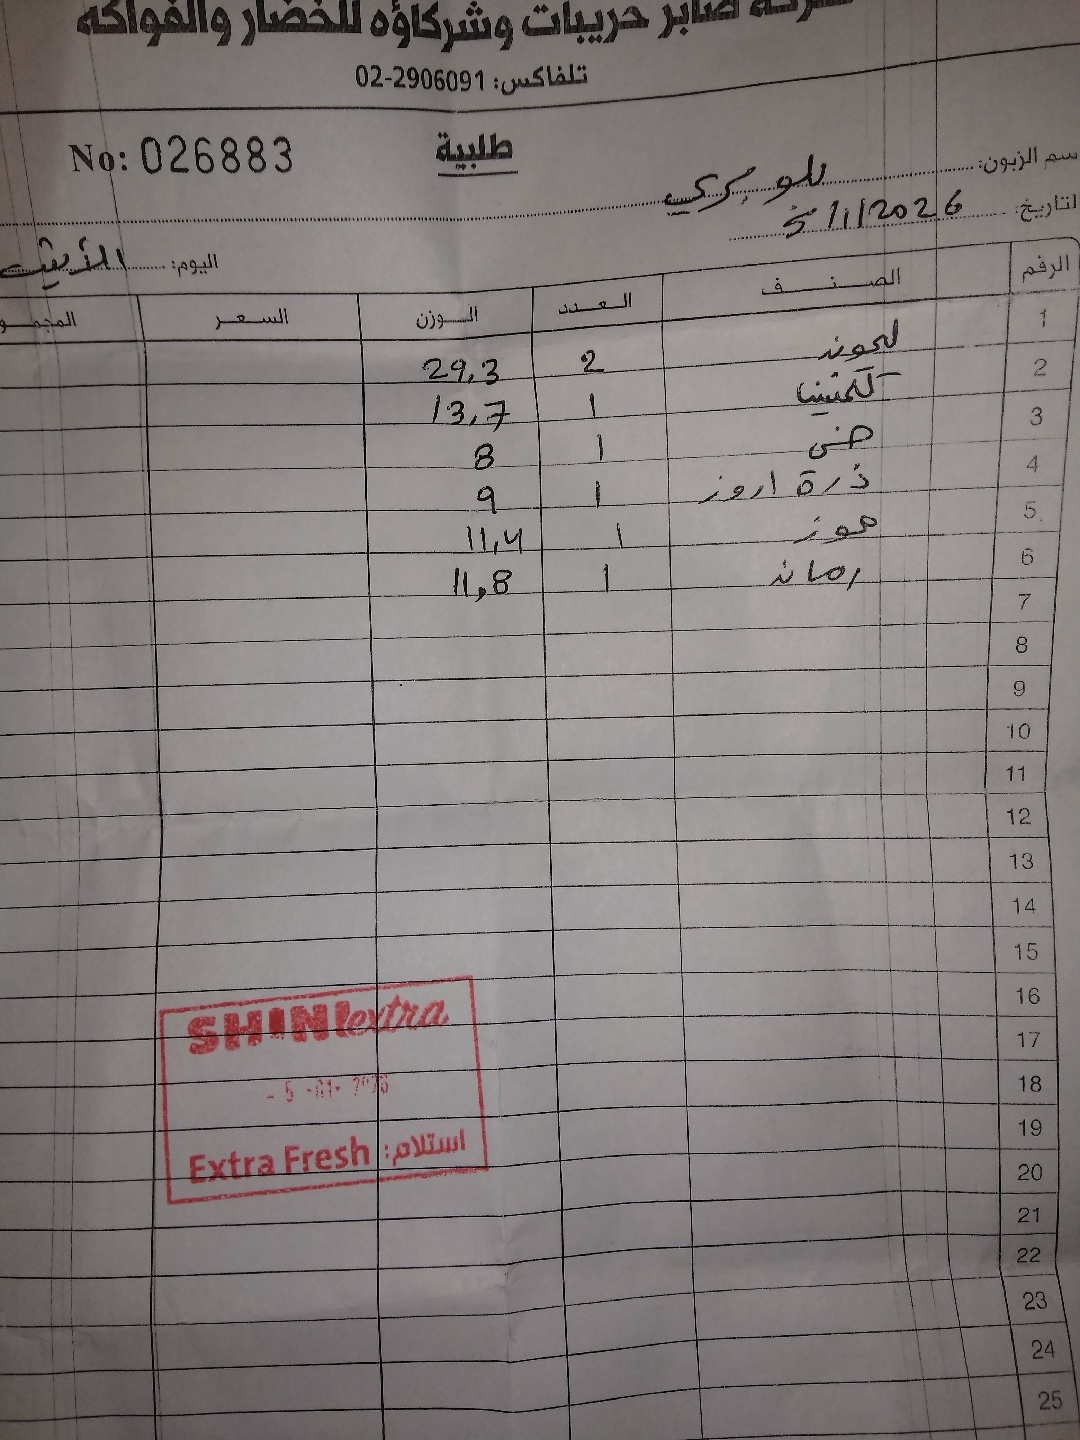 شركة صابر حريبات وشركاؤه للخضار والفواكه
تلفاكس: 02-2906091
No: 026883
طلبية
سم الزبون:
لتاريخ: 5/1/2026
اليوم: الأثنين
الرقم الصنف العدد الوزن السعر المجمو
1 ليمون 2 29,3
2 كلمنتينا 1 13,7
3 خس 1 8
4 ذرة اروز 1 9
5 موز 1 11,4
6 رمان 1 11,8
7
8
9
10
11
12
13
14
15
16
17
18
19
20
21
22
23
24
25
SHINI extra
- 5 -01- 2026
استلام: Extra Fresh